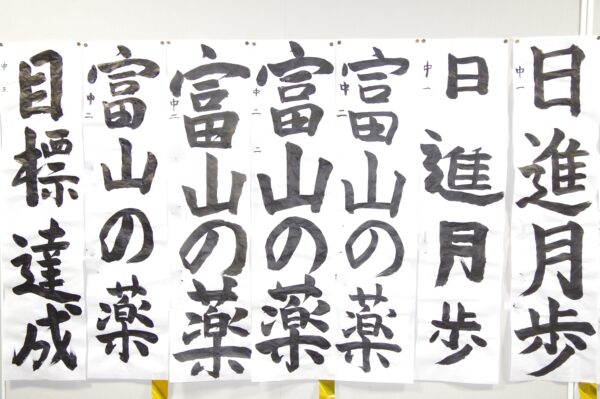 日進月歩
中一
日進月歩
中一
富山の薬
中二
富山の薬
中二
富山の薬
中二
富山の薬
中二
目標達成
中三